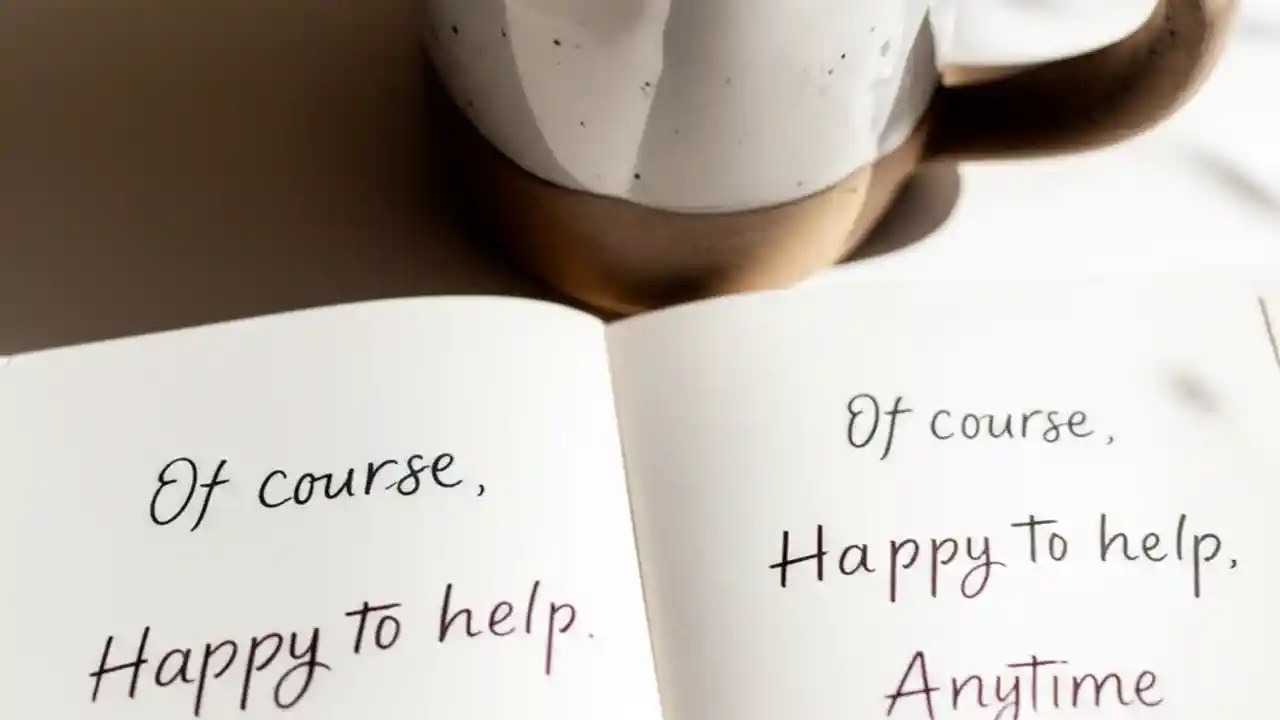 Of course,
Happy to help.
Of course,
Happy to help,
Anytime